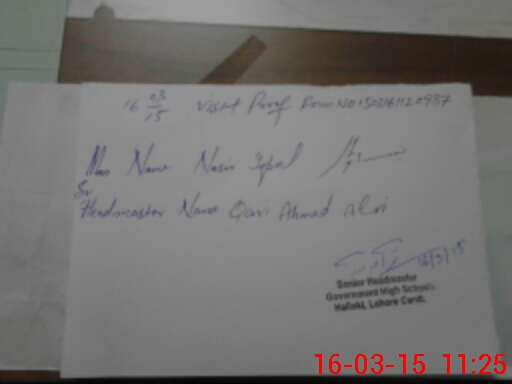 16 03/15 Visit Proof Form No
Name Nasir Iqbal
Sr
Headmaster Name Qari Ahmad Alvi
16/3/15
Senior Headmaster
Government High School
Lahore Cantt.
16-03-15 11:25